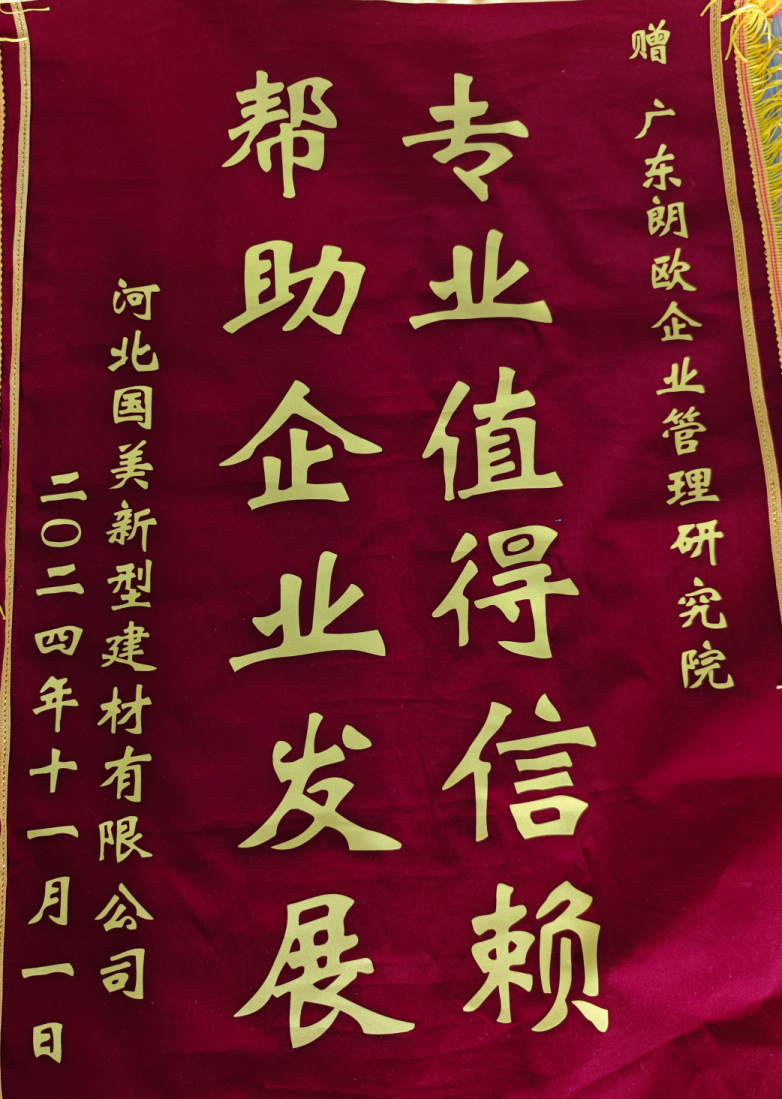 赠 广东朗欧企业管理研究院
专业值得信赖
帮助企业发展
河北国美新型建材有限公司
二〇二四年十一月一日